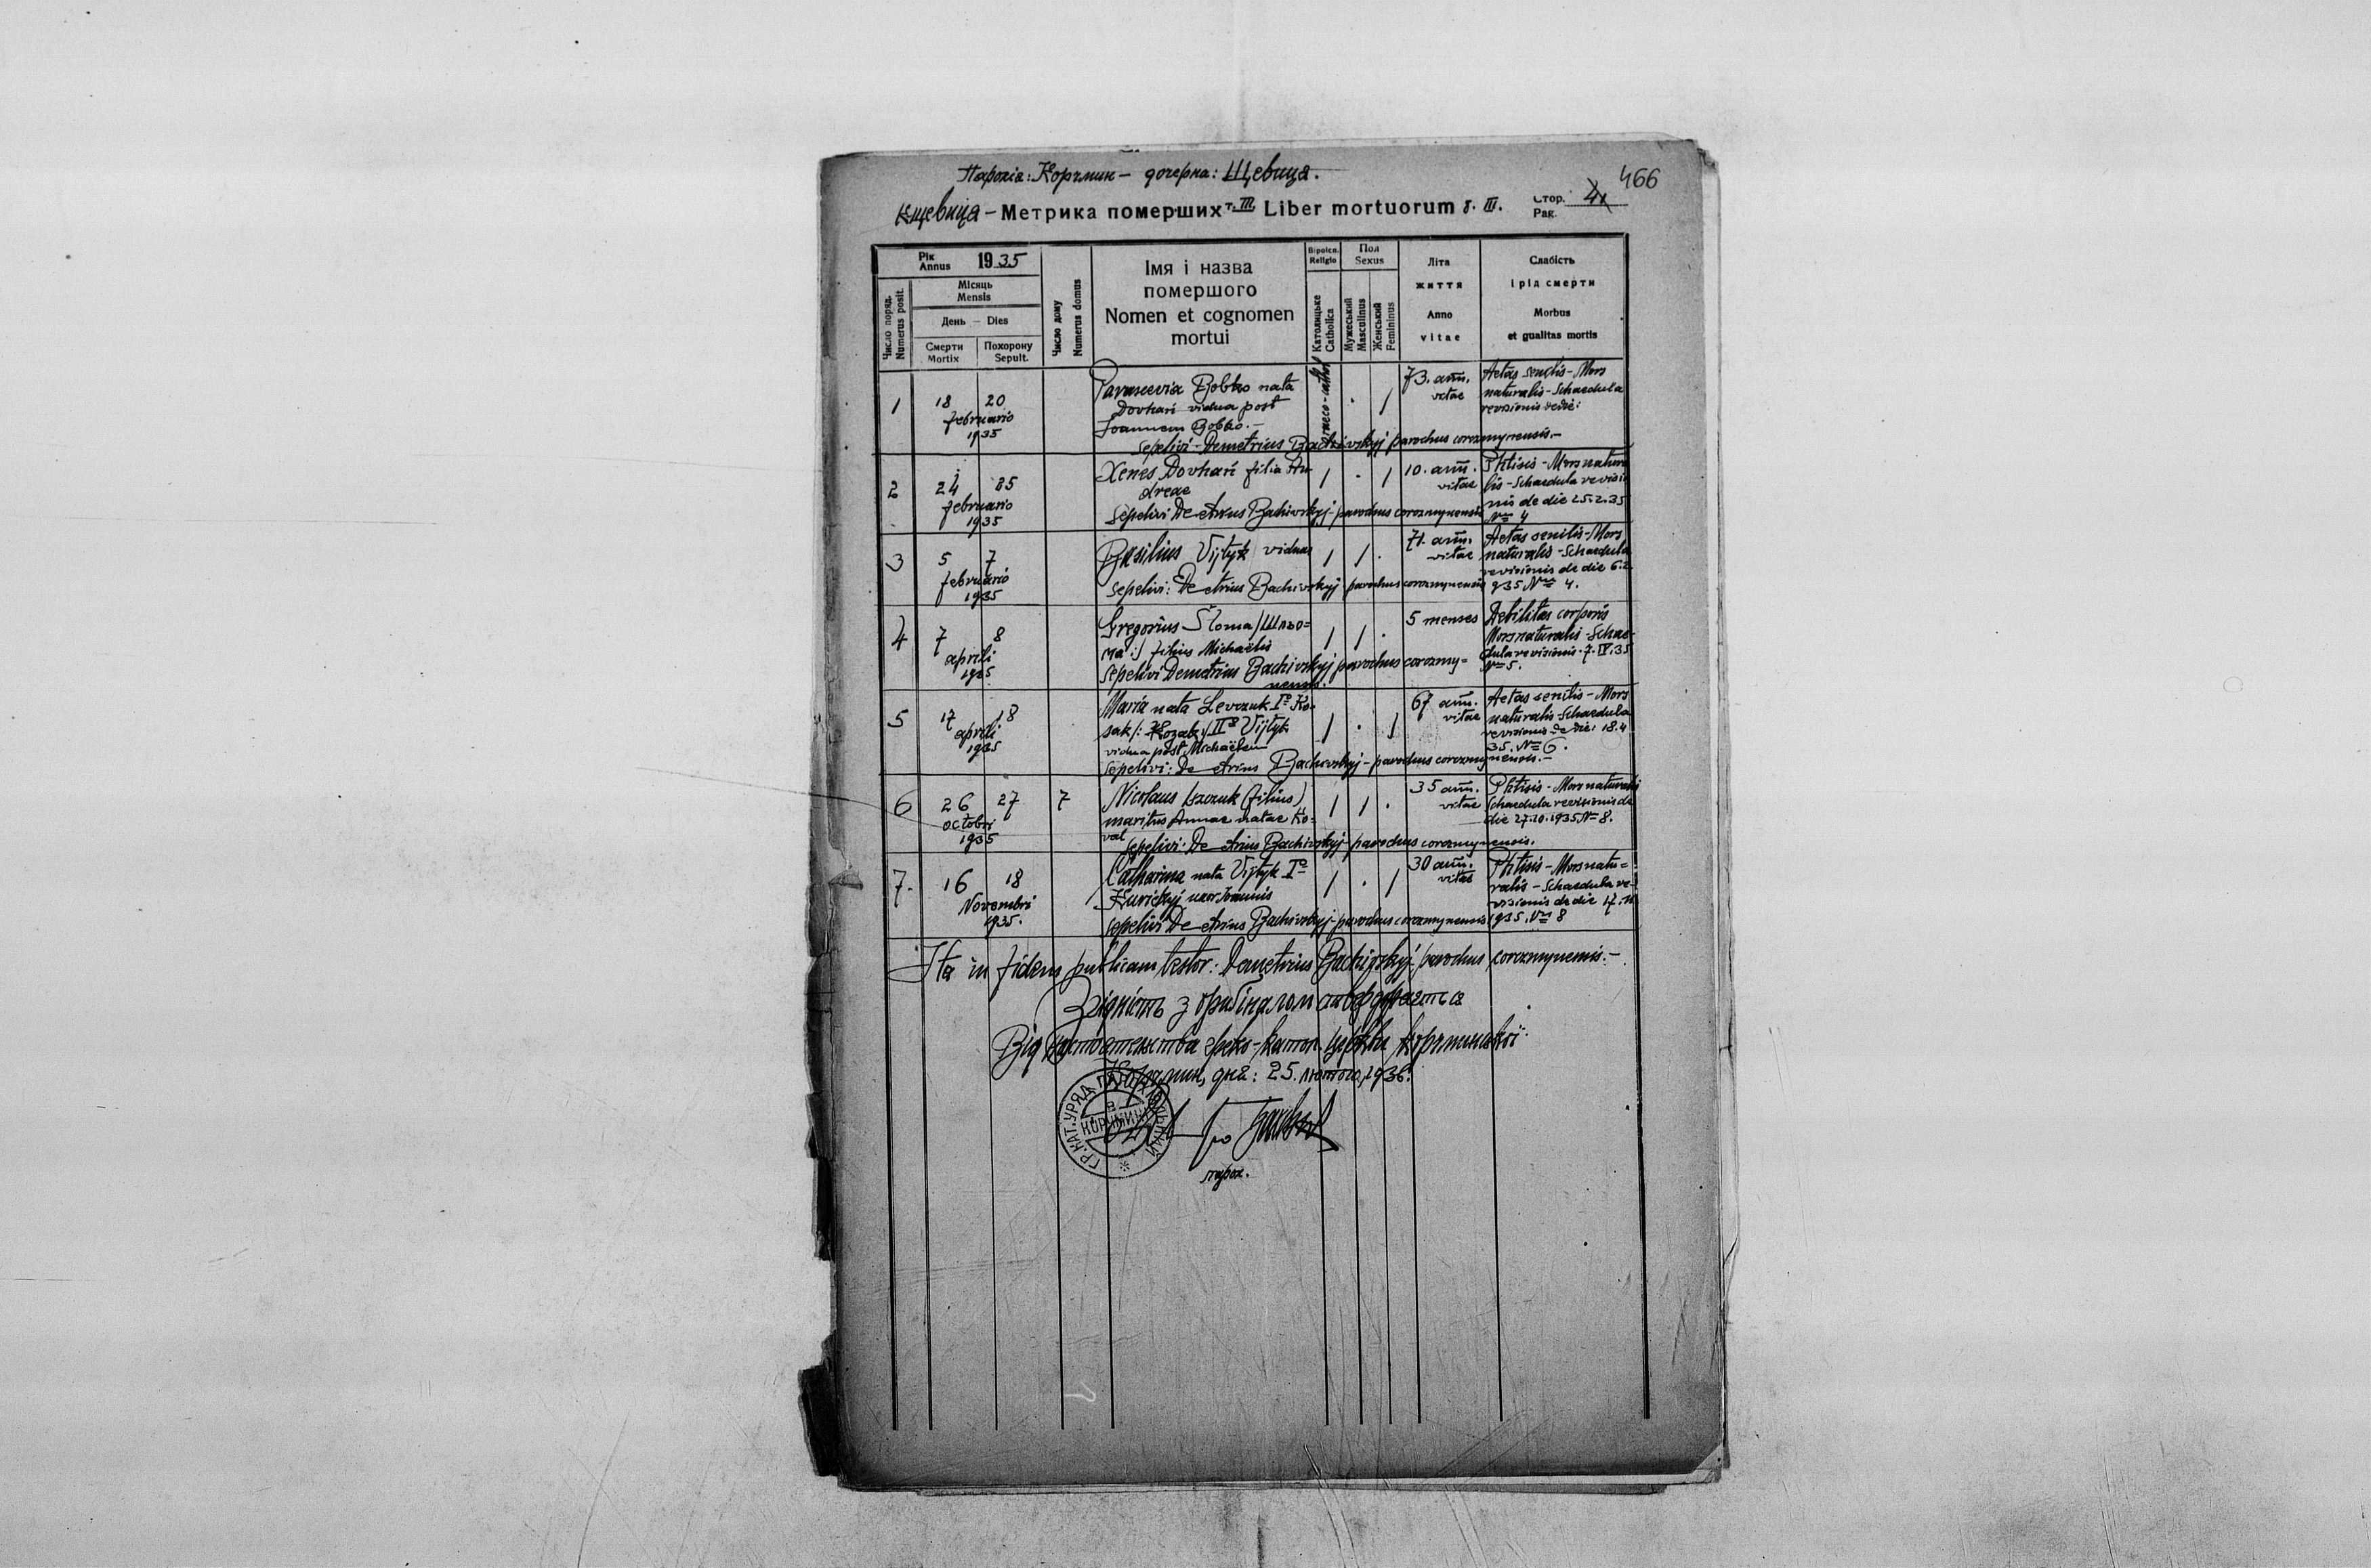 Парохія: Корчмин – дочерна: Щевиця.
466
Щевиця – Метрика померших т. III. Liber mortuorum т. III.
Стор. Pag. 4
Рік Annus 1935
Місяць Mensis
День – Dies
Число поряд. Numerus posit.
Смерти Mortix
Похорону Sepult.
Число дому Numerus domus
Імя і назва
помершого
Nomen et cognomen
mortui
Віроісп. Religio
Католицьке Catholica
Пол Sexus
Мужеський Masculinus
Женський Femininus
Літа
життя
Anno
vitae
Слабість
і рід смерти
Morbus
et gualitas mortis
1 18 20 februario 1935
Parascevia Bobko nata
Dovhań vidua post
Joannem Bobko.–
graeco-cathol.
73. ann. vitae
Aetas senilis – Mors
naturalis – Schaedula
revisionis
Sepelivi – Demetrius Bachivskyj parochus corozmynensis.–
2 24 25 februario 1935
Xenes Dovhań filia An-
dreae
10. ann. vitae
Phtisis – Mors natura
lis – Schaedula revisio
nis de die 25.2.35
№ 4
Sepelivi Demetrius Bachivskyj – parochus corozmynensis
3 5 7 februario 1935
Basilius Vijtyk viduus
71. ann. vitae
Aetas senilis – Mors
naturalis – Schaedula
revisionis de die 6.2.
935 № 4.
Sepelivi: Demetrius Bachivskyj parochus corozmynensis
4 7 8 aprili 1935
Gregorius Šloma /: Шльо=
ма :/ filius Michaëlis
5 menses
Debilitas corporis
Mors naturalis – Schae-
dula revisionis. 7. IV. 35
№ 5.
Sepelivi Demetrius Bachivskyj parochus corozmy=
nensis.
5 17 18 aprili 1935
Maria nata Levczuk I° Ko-
sak /: Kozak :/ II° Vijtyk
vidua post Michaëlem
67 ann. vitae
Aetas senilis – Mors
naturalis Schaedula
revisionis de die: 18.4
35. № 6.
Sepelivi: Demetrius Bachivskyj – parochus corozmynensis.–
6 26 27 octobri 1935 7
Nicolaus Iszczuk (filius)
maritus Annae natae Ko=
val
35 ann. vitae
Phtisis – Mors naturalis
Schaedula revisionis de
die 27.10.1935 № 8.
Sepelivi: Demetrius Bachivskyj – parochus corozmynensis.
7. 16 18 Novembri 1935.
Catharina nata Vijtyk I°
Kurickyj uxor Joannis
30 ann. vitae
Phtisis – Mors natu=
ralis – Schaedula re-
visionis de die 17.11
1935. № 8
Sepelivi Demetrius Bachivskyj – parochus corozmynensis
Ita in fidem publicam testor: Demetrius Bachivskyj parochus corozmynensis.–
Згідність з оригіналом стверджається
Від настоятельства греко-катол. церкви корчминської
Корчмин, дня: 25. лютого, 1936.
ГР. КАТ. УРЯД ПАРОХІЯЛЬНИЙ
В КОРЧМИНІ
парох.